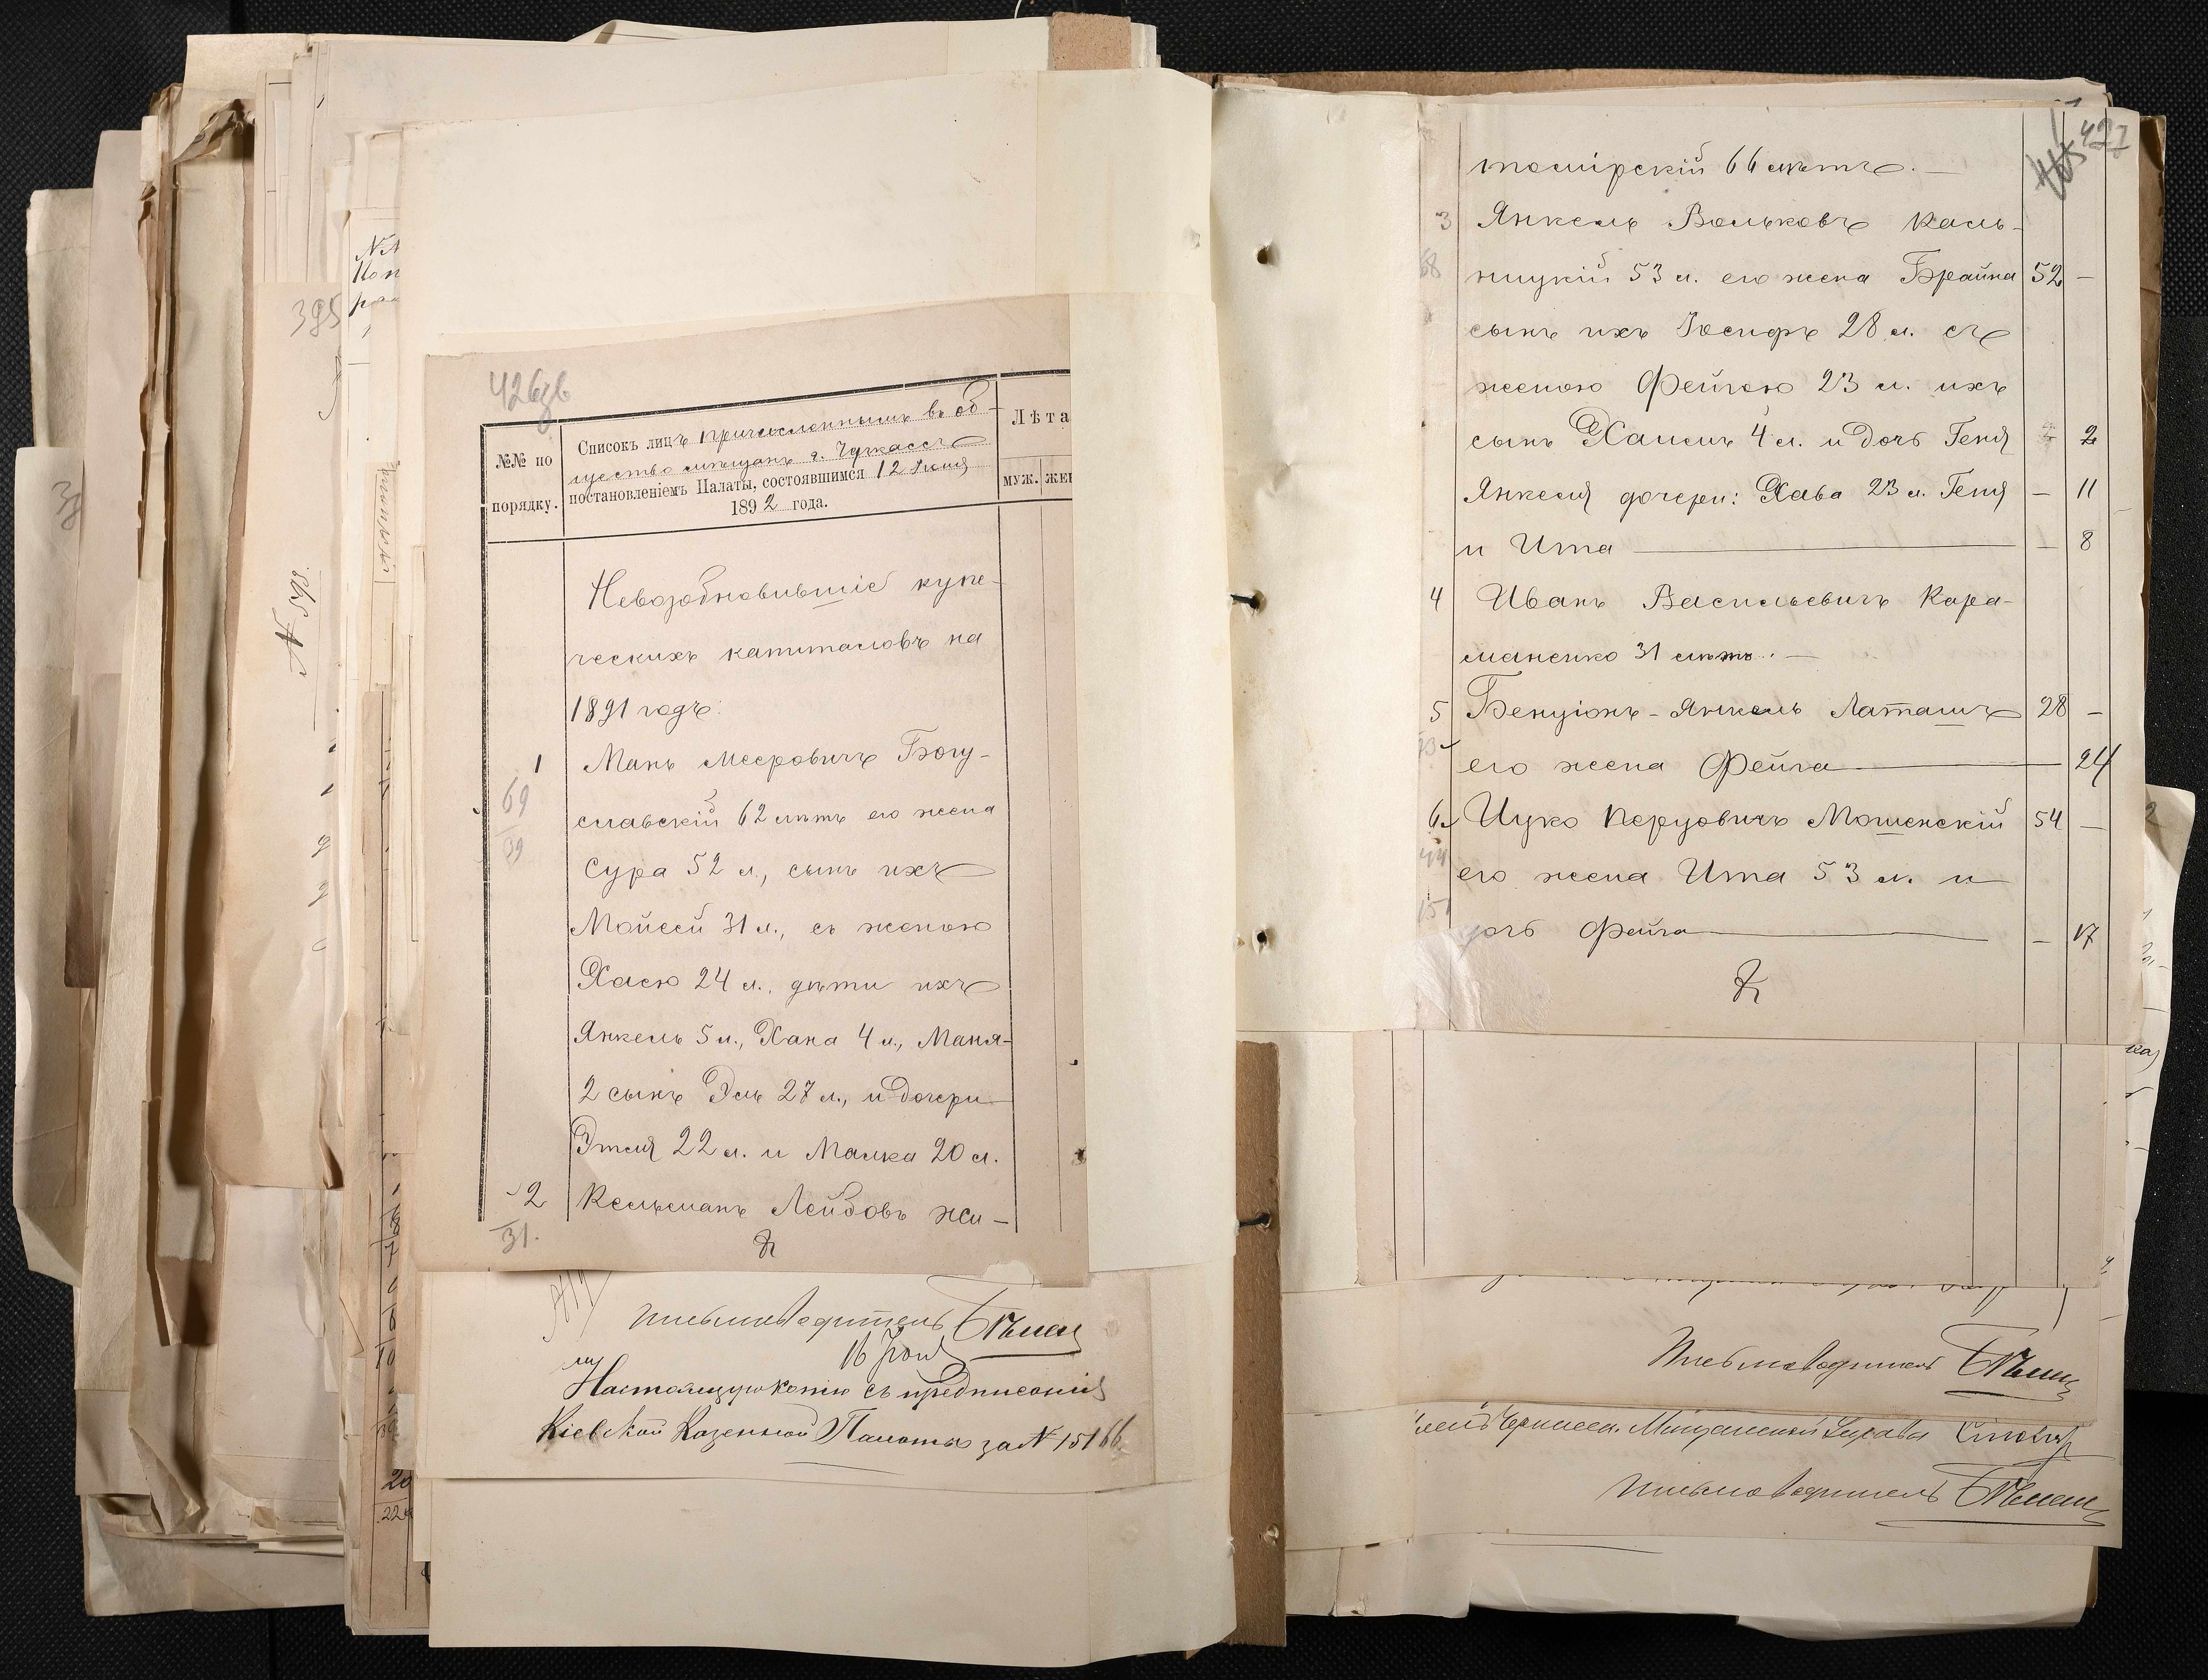 426зв
№№ по порядку.
Списокъ лицъ причисленнымъ въ об-
щество мѣщанъ г. Черкассъ
постановленіемъ Палаты, состоявшимся 12 Іюня
1892 года.
Лѣта
муж. жен
Невозобновившіе купе-
ческихъ капиталовъ на
1891 годъ:
1 Манъ Мееровичъ Богу-
69 славскій 62 лѣтъ его жена
39 Сура 52 л., сынъ ихъ
Мойсей 31 л., съ женою
Хасю 24 л., дѣти ихъ
Янкель 5 л., Хана 4 л., Маня-
2 сынъ Эль 27 л., и дочери
Этля 22 л. и Малка 20 л.
2 Кельманъ Лейбовъ Жи-
31.
Письмоводитель
16 Іюня
Настоящую копію съ предписанія
Кіевской Казенной Палаты за № 15166
395
№ 598
427
томирскій 66 лѣтъ. —
3 Янкель Вольковъ Каль-
68 ницкій 53 л. его жена Брайна 52 —
сынъ ихъ Іосифъ 28 л. съ
женою Фейгою 23 л. ихъ
сынъ Хаимъ 4 л. и дочь Геня 2
Янкеля дочери: Хава 23 л. Геня — 11
и Ита — — 8
4 Иванъ Васильевичъ Кара-
маненко 31 лѣтъ. —
5 Бенціонъ-Янкель Латашъ 28 —
его жена Фейга — 24
6 Ицко Перцовичъ Мошенскій 54 —
его жена Ита 53 л. и
дочь Фейга — — 17
Письмоводитель
Черкасск. Мѣщанской Управы
Письмоводитель